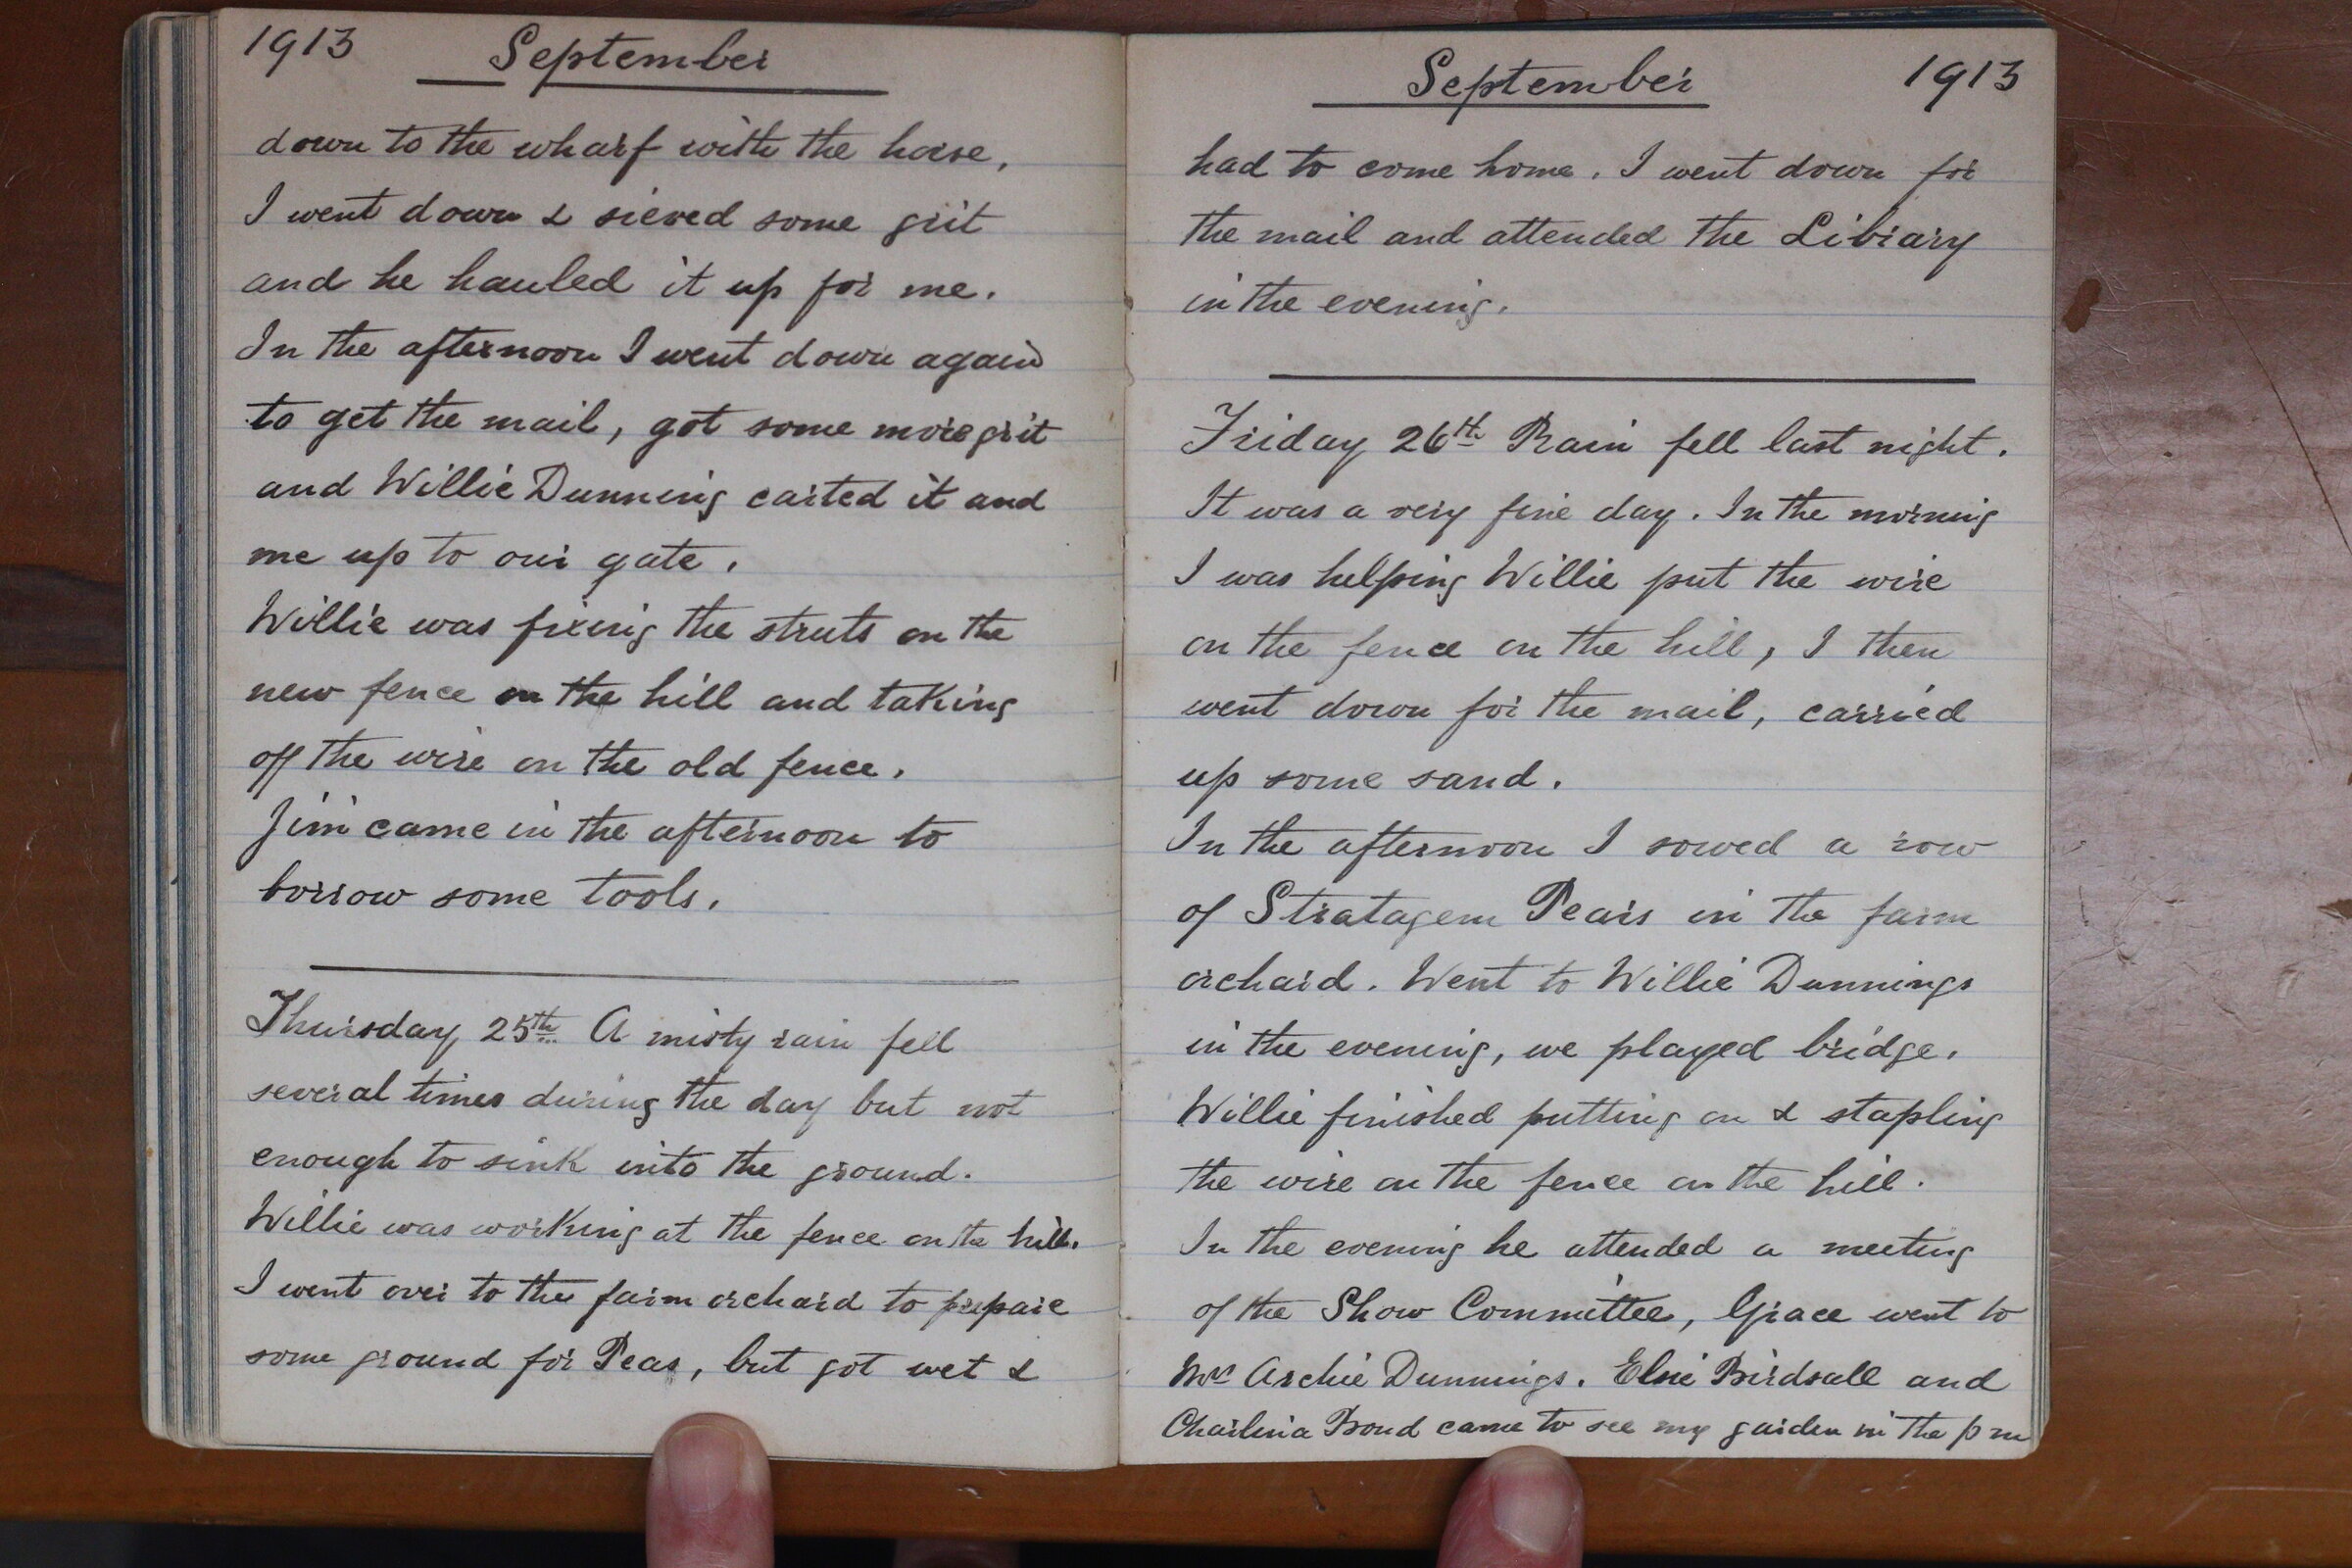 1913 September
down to the wharf with the horse,
I went down & sieved some grit
and he hauled it up for me.
In the afternoon I went down again
to get the mail, got some more grit
and Willie Dunning carted it and
me up to our gate.
Willie was fixing the struts on the
new fence on the hill and taking
off the wire on the old fence.
Jim came in the afternoon to
borrow some tools.
Thursday 25th A misty rain fell
several times during the day but not
enough to sink into the ground.
Willie was working at the fence on the hill.
I went over to the farm orchard to prepare
some ground for Peas, but got wet &
September 1913
had to come home. I went down for
the mail and attended the Library
in the evening.
Friday 26th Rain fell last night.
It was a very fine day. In the morning
I was helping Willie put the wire
on the fence on the hill, I then
went down for the mail, carried
up some sand.
In the afternoon I sowed a row
of Stratagem Pears in the farm
orchard. Went to Willie Dunnings
in the evening, we played bridge.
Willie finished putting on & stapling
the wire on the fence on the hill.
In the evening he attended a meeting
of the Show Committee, Grace went to
Mrs Archie Dunnings. Elsie Birdsall and
Charlina Proud came to see my garden in the pm